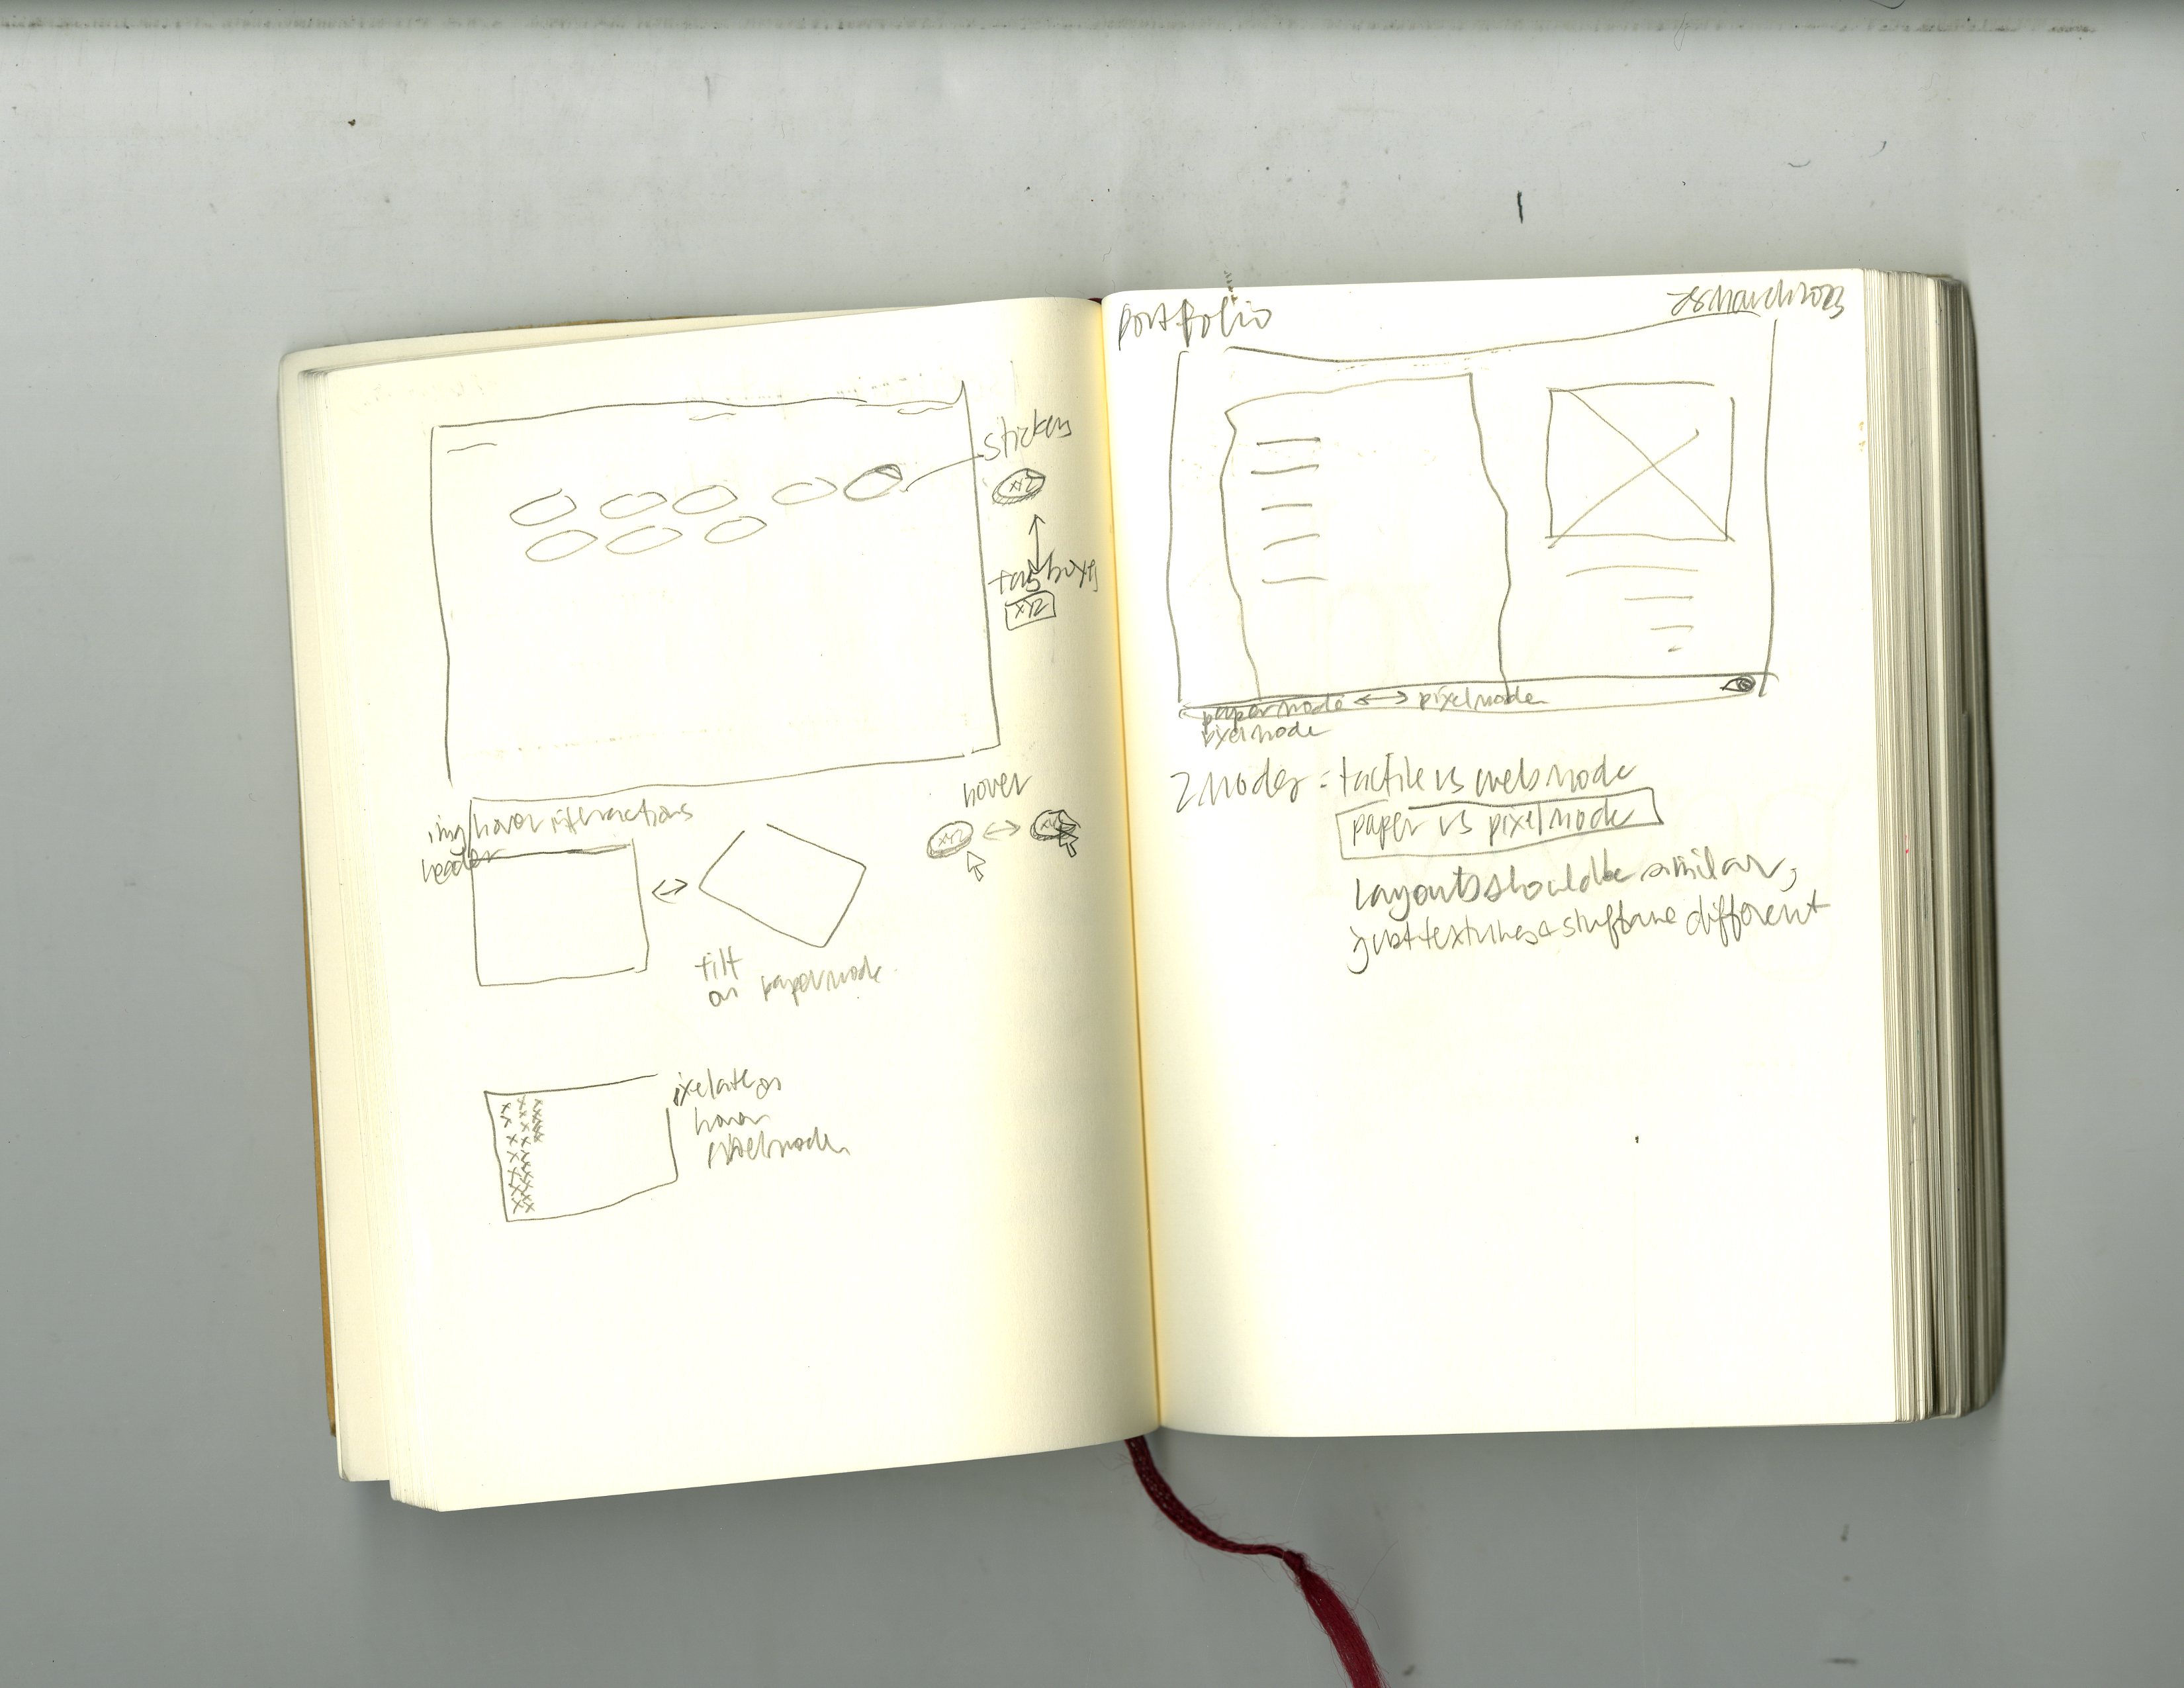 stickers
XYZ
tag boxes
XYZ
hover
XYZ
img/hover interactions
header
tilt
on papermode
pixelate on
hover
pixelmode
portfolio
28 March 2023
papermode ↔ pixelmode
pixelmode
2 modes = tactile vs web mode
paper vs pixel mode
layout should be similar,
just textures + stuff are different